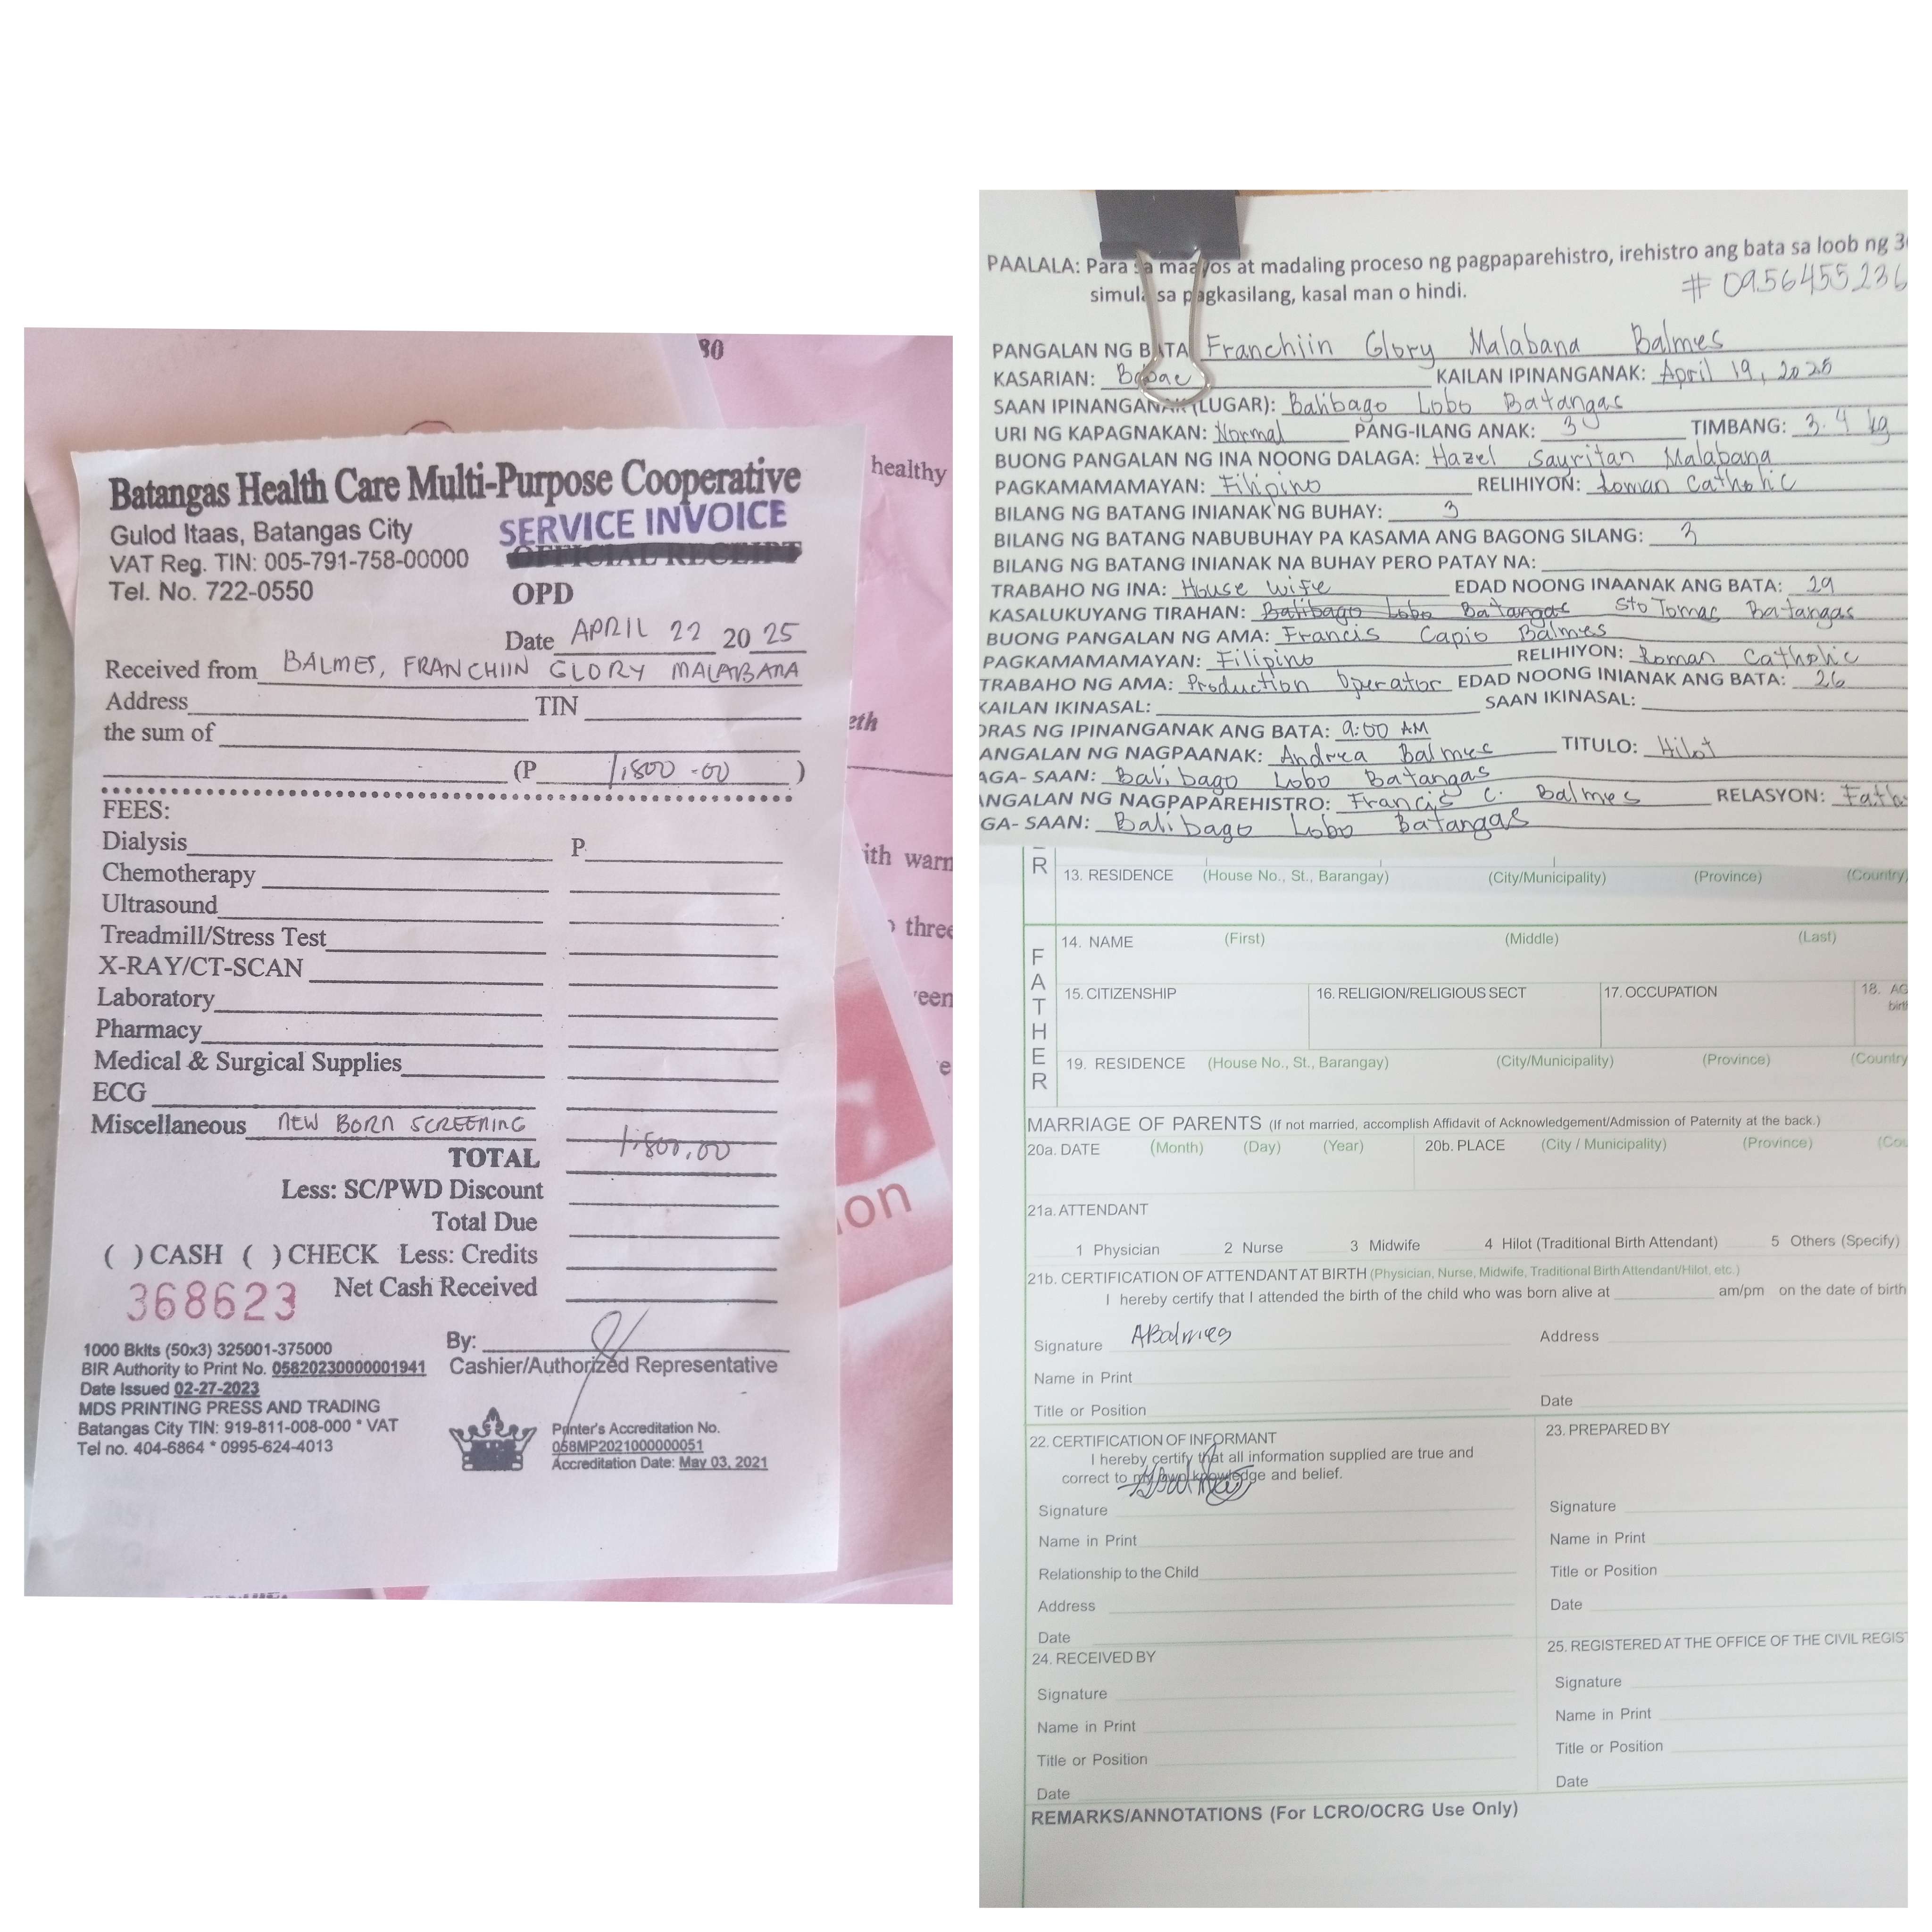 80
healthy
eth
ith warm
three
reen
e
ion
Batangas Health Care Multi-Purpose Cooperative
Gulod Itaas, Batangas City
SERVICE INVOICE
VAT Reg. TIN: 005-791-758-00000
OFFICIAL RECEIPT
Tel. No. 722-0550
OPD
Date APRIL 22 20 25
Received from BALMES, FRANCHIIN GLORY MALABANA
Address TIN
the sum of
(P 1,800.00 )
FEES:
Dialysis P
Chemotherapy
Ultrasound
Treadmill/Stress Test
X-RAY/CT-SCAN
Laboratory
Pharmacy
Medical & Surgical Supplies
ECG
Miscellaneous NEW BORN SCREENING
TOTAL 1,800.00
Less: SC/PWD Discount
Total Due
( ) CASH ( ) CHECK Less: Credits
368623 Net Cash Received
By:
Cashier/Authorized Representative
1000 Bklts (50x3) 325001-375000
BIR Authority to Print No. 05820230000001941
Date Issued 02-27-2023
MDS PRINTING PRESS AND TRADING
Batangas City TIN: 919-811-008-000 * VAT
Tel no. 404-6864 * 0995-624-4013
Printer's Accreditation No.
058MP2021000000051
Accreditation Date: May 03, 2021
PAALALA: Para sa maayos at madaling proceso ng pagpaparehistro, irehistro ang bata sa loob ng 3
simula sa pagkasilang, kasal man o hindi.
# 0956455236
PANGALAN NG BATA Franchiin Glory Malabana Balmes
KASARIAN: Babae KAILAN IPINANGANAK: April 19, 2025
SAAN IPINANGANAK (LUGAR): Balibago Lobo Batangas
URI NG KAPAGNAKAN: Normal PANG-ILANG ANAK: 3 TIMBANG: 3.4 kg
BUONG PANGALAN NG INA NOONG DALAGA: Hazel Sauritan Malabana
PAGKAMAMAMAYAN: Filipino RELIHIYON: Roman Catholic
BILANG NG BATANG INIANAK NG BUHAY: 3
BILANG NG BATANG NABUBUHAY PA KASAMA ANG BAGONG SILANG: 3
BILANG NG BATANG INIANAK NA BUHAY PERO PATAY NA:
TRABAHO NG INA: House wife EDAD NOONG INAANAK ANG BATA: 29
KASALUKUYANG TIRAHAN: Balibago Lobo Batangas Sto Tomas Batangas
BUONG PANGALAN NG AMA: Francis Capio Balmes
PAGKAMAMAMAYAN: Filipino RELIHIYON: Roman Catholic
TRABAHO NG AMA: Production Operator EDAD NOONG INIANAK ANG BATA: 26
KAILAN IKINASAL: SAAN IKINASAL:
ORAS NG IPINANGANAK ANG BATA: 9:00 AM
ANGALAN NG NAGPAANAK: Andrea Balmes TITULO: Hilot
AGA- SAAN: Balibago Lobo Batangas
ANGALAN NG NAGPAPAREHISTRO: Francis C. Balmes RELASYON: Fath
GA- SAAN: Balibago Lobo Batangas
R
13. RESIDENCE (House No., St., Barangay) (City/Municipality) (Province) (Country)
FATHER
14. NAME (First) (Middle) (Last)
15. CITIZENSHIP 16. RELIGION/RELIGIOUS SECT 17. OCCUPATION 18. AG
birt
19. RESIDENCE (House No., St., Barangay) (City/Municipality) (Province) (Country
MARRIAGE OF PARENTS (If not married, accomplish Affidavit of Acknowledgement/Admission of Paternity at the back.)
20a. DATE (Month) (Day) (Year) 20b. PLACE (City / Municipality) (Province) (Cou
21a. ATTENDANT
1 Physician 2 Nurse 3 Midwife 4 Hilot (Traditional Birth Attendant) 5 Others (Specify)
21b. CERTIFICATION OF ATTENDANT AT BIRTH (Physician, Nurse, Midwife, Traditional Birth Attendant/Hilot, etc.)
I hereby certify that I attended the birth of the child who was born alive at am/pm on the date of birth
Signature ABalmes Address
Name in Print
Title or Position Date
22. CERTIFICATION OF INFORMANT
I hereby certify that all information supplied are true and
correct to my own knowledge and belief.
Signature
Name in Print
Relationship to the Child
Address
Date
23. PREPARED BY
Signature
Name in Print
Title or Position
Date
24. RECEIVED BY
Signature
Name in Print
Title or Position
Date
25. REGISTERED AT THE OFFICE OF THE CIVIL REGIS
Signature
Name in Print
Title or Position
Date
REMARKS/ANNOTATIONS (For LCRO/OCRG Use Only)